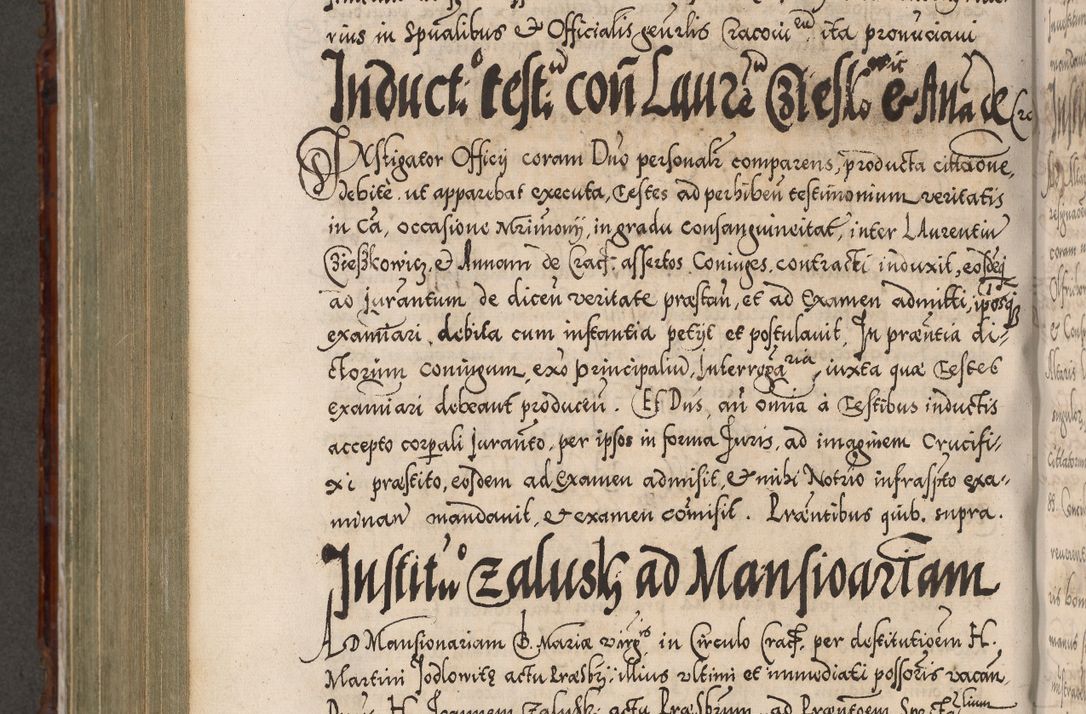 rius in Spualibus & Officialis genrlis Cracouien, ita pronuciaui
Inductio testiu con Laure Zieszko & Anna de Cr
INstigator Officij coram Dno personalr comparens, producta cittaone,
debitè ut apparebat executa, Testes ad perhibeñ testimonium veritatis
in Ca, occasione Mrimonij, in gradu consanguineitat, inter LAurentiu
Zieszkowicz, & Annam de Crac: assertos Coniuges, contracti induxit, eosdeq
ad iurantum de diceñ veritate præstañ, et ad Examen admitti, iposq
examiari, debita cum instantia petijt et postulauit, In præntia di-
ctorum coniugum, exo principaliu, Interrogaria, iuxta quæ Testes
examiari debeant produceñ. Et Dns, añ omia à Testibus inductis
accepto corpali Juranto, per ipsos in forma Juris, ad imaginem Crucifi-
xi præstito, eosdem ad Examen admisit, & mihi Notrio infrascpto exa-
minan mandauit, & examen comisit. Præntibus quib. supra.
Institutio Zaluski ad Mansioariam
AD Mansionariam B. Mariæ virgis in Circulo Crac: per destitutioem H.
Martini Jodlowitz actu Præsbr: illius vltimi et immediati possoris vacañ
H. Joannem Zaluski actu Præsbrum ad Præntoem